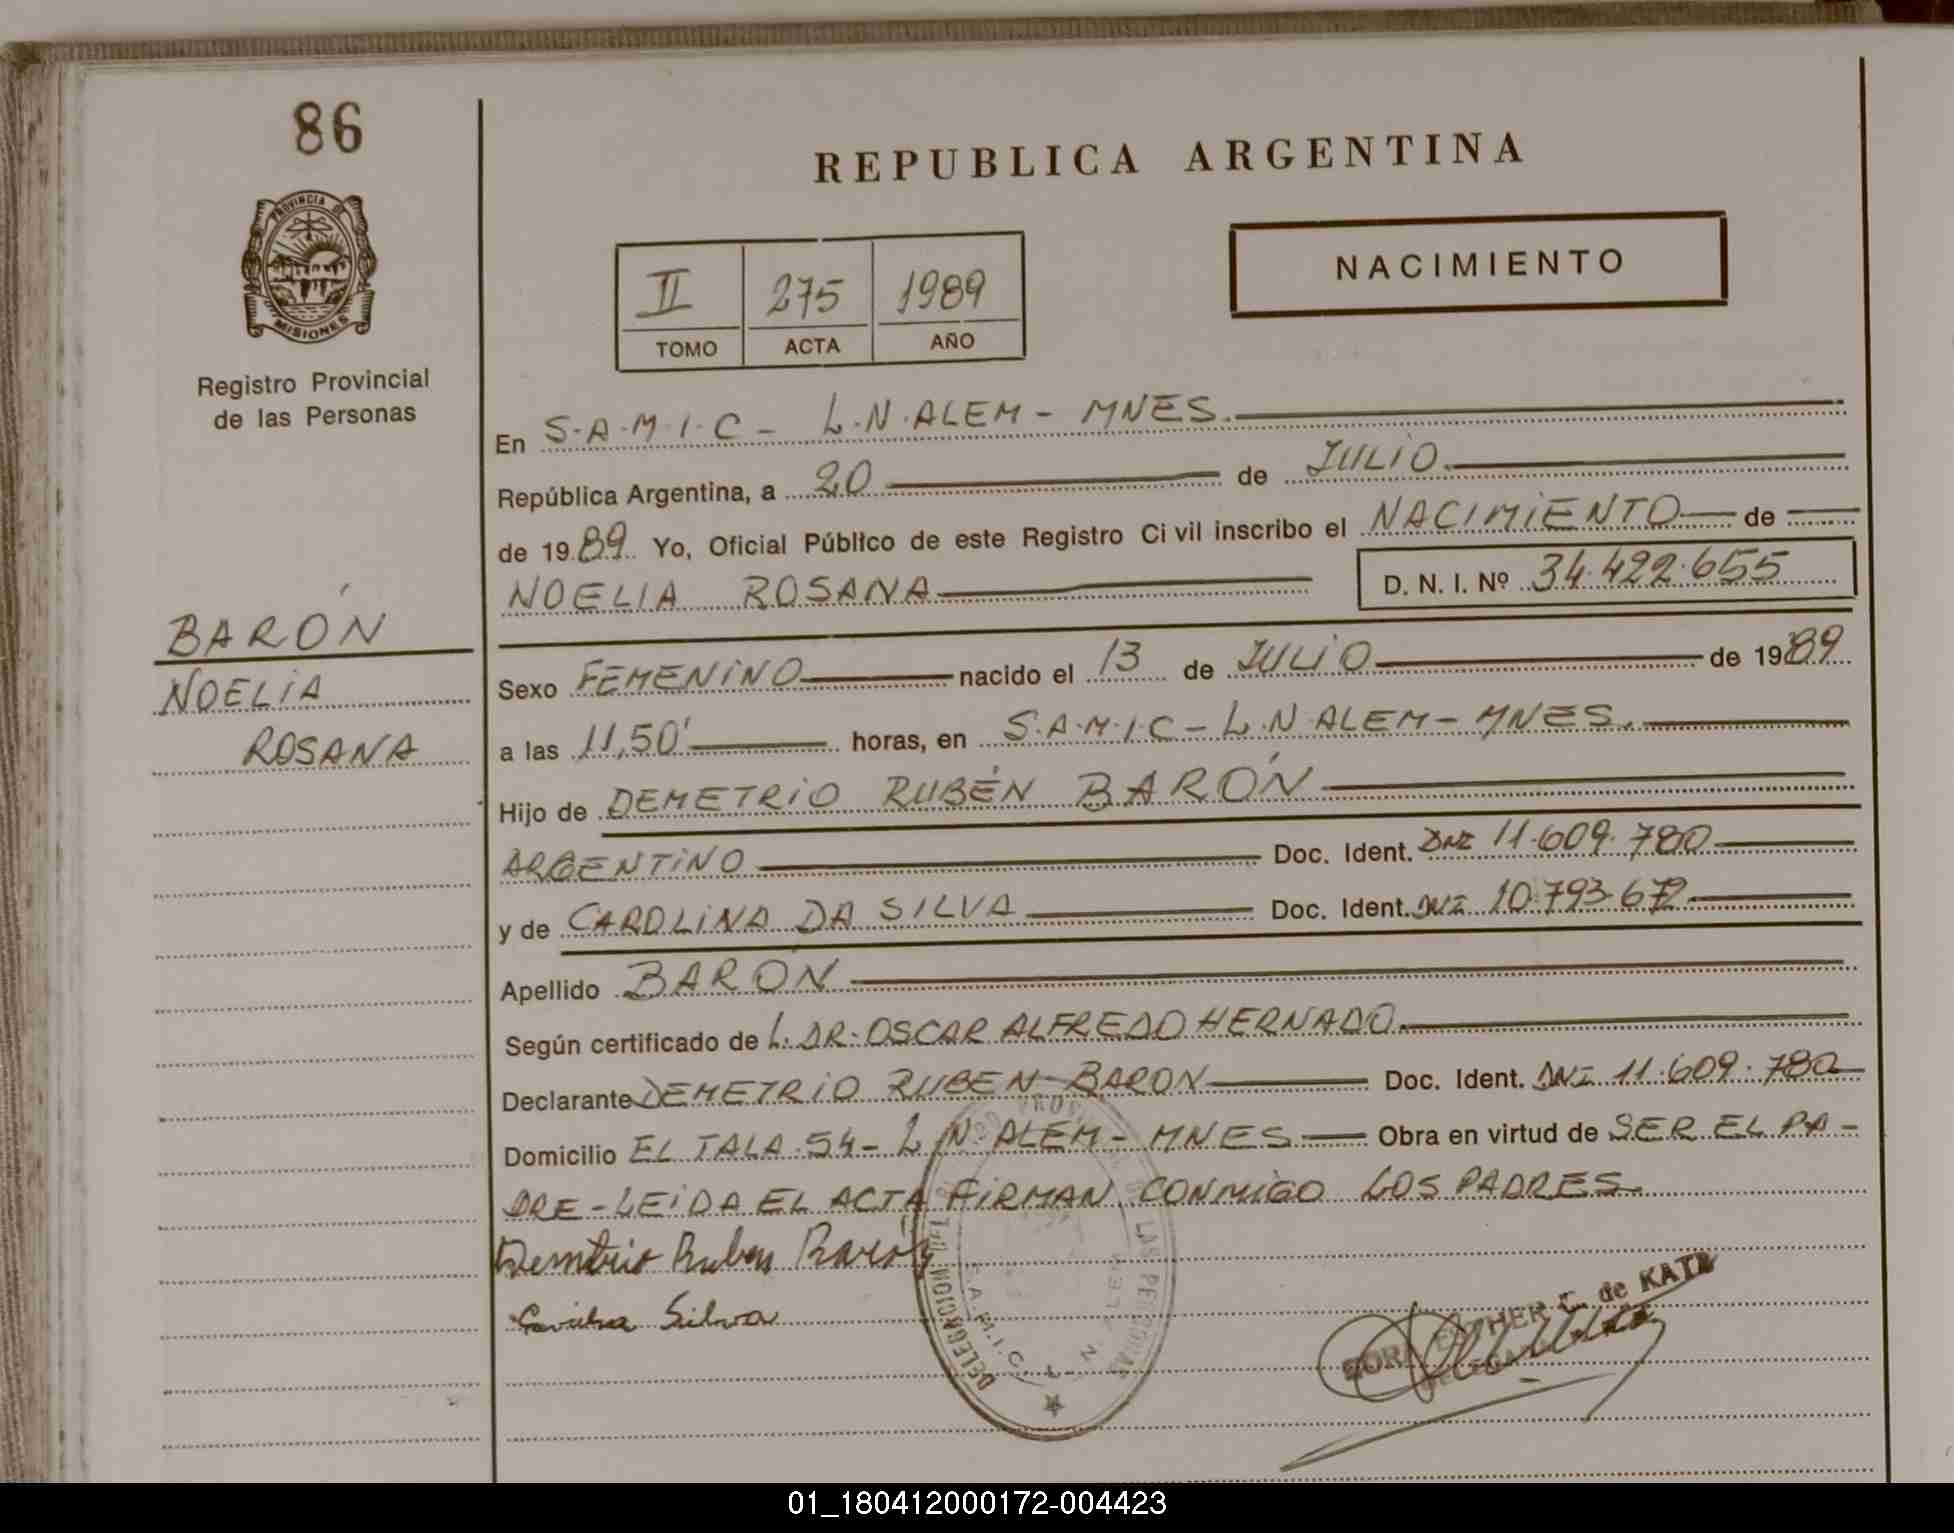 86
PROVINCIA DE
MISIONES
Registro Provincial
de las Personas
BARÓN
NOELIA
ROSANA
REPUBLICA ARGENTINA
II 275 1989
TOMO ACTA AÑO
NACIMIENTO
En S.A.M.I.C - L.N.ALEM - MNES.
República Argentina, a 20 de JULIO
de 1989 Yo, Oficial Público de este Registro Civil inscribo el NACIMIENTO de
NOELIA ROSANA D. N. I. Nº 34.422.655
Sexo FEMENINO nacido el 13 de JULIO de 1989
a las 11,50' horas, en S.A.M.I.C - L.N.ALEM - MNES.
Hijo de DEMETRIO RUBÉN BARÓN
ARGENTINO Doc. Ident. DNI 11.609.780
y de CAROLINA DA SILVA Doc. Ident. DNI 10.793.672
Apellido BARÓN
Según certificado de L. DR. OSCAR ALFREDO HERNADO.
Declarante DEMETRIO RUBEN BARON Doc. Ident. DNI 11.609.780
Domicilio EL TALA 54 - L.N.ALEM - MNES Obra en virtud de SER EL PA-
DRE - LEIDA EL ACTA FIRMAN CONMIGO LOS PADRES.
Demetrio Ruben Barón
Silva
DELEGACION
LAS PERSONAS
S.A.M.I.C. L. N. ALEM
ESTHER C. de KATZ
01_180412000172-004423